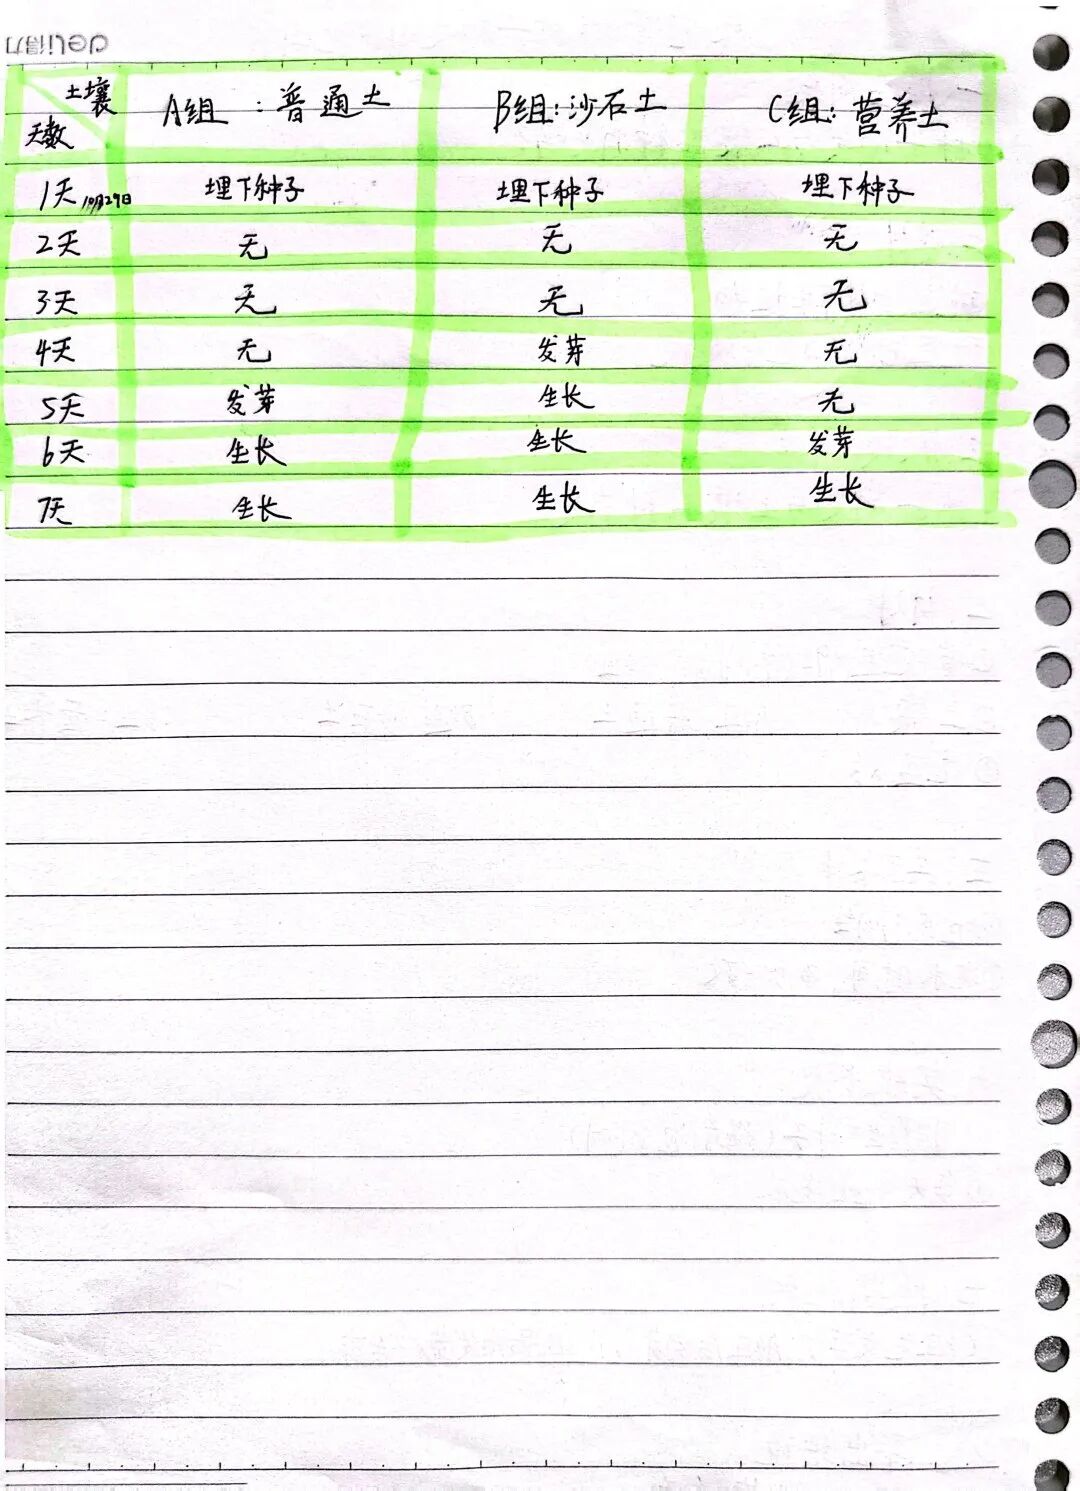 deli得力
土壤 A组：普通土 B组：沙石土 C组：营养土
天数
1天 10月29日 埋下种子 埋下种子 埋下种子
2天 无 无 无
3天 无 无 无
4天 无 发芽 无
5天 发芽 生长 无
6天 生长 生长 发芽
7天 生长 生长 生长